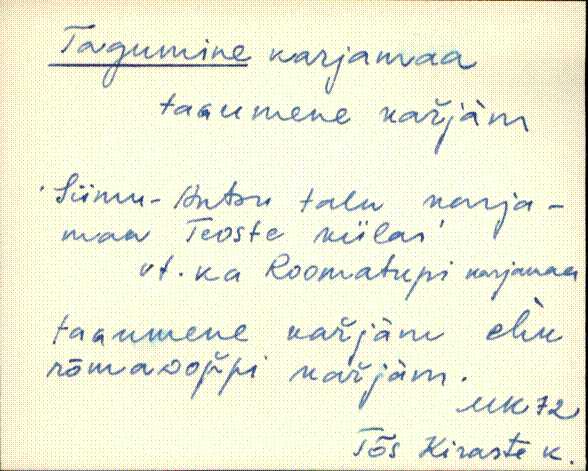 Tagumine karjamaa
taaumene kařjàm
'Siimu-Antsu talu karja-
maa Teoste külas'
vt. ka Roomatupi karjamaa
taaumene kařjàm ehk
rōmaDop̆pi kařjàm.
MK 72
Tõs Kiraste k.